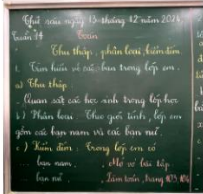 Thứ sáu ngày 13 tháng 12 năm 2024
Tuần 14 Toán
Thu thập, phân loại, kiểm đếm
1. Tìm hiểu về các bạn trong lớp em.
a) Thu thập
Quan sát các học sinh trong lớp học
b) Phân loại: Theo giới tính, lớp em
gồm các bạn nam và các bạn nữ.
c) Kiểm đếm: Trong lớp em có
bạn nam. Mở vở bài tập
bạn nữ. Làm toán, trang 103